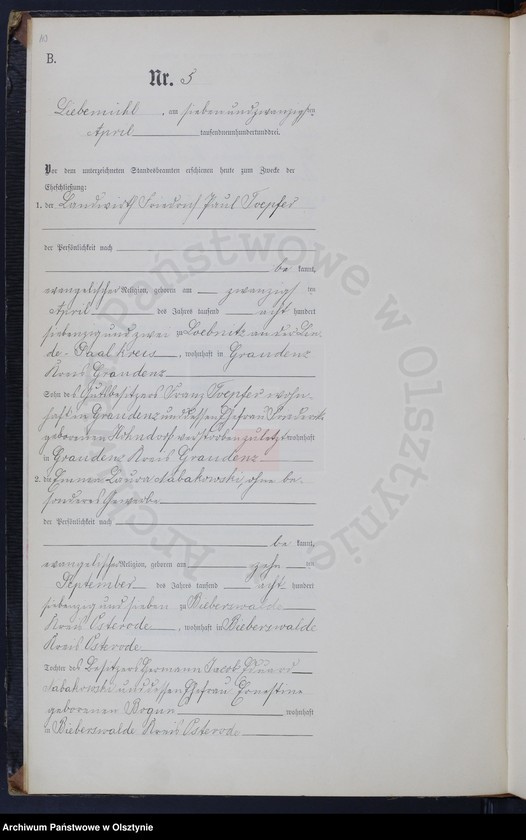 B.
Nr. 5
Liebemühl, am sieben und zwanzigsten
April tausendneunhundertunddrei.
Vor dem unterzeichneten Standesbeamten erschienen heute zum Zwecke der
Eheschließung:
1. der Landwirth Friedrich Paul Toepfer
der Persönlichkeit nach
be kannt,
evangelischer Religion, geboren am zwanzigsten
April des Jahres tausend acht hundert
siebenzig und zwei zu Loebnitz an der Lin-
de - Saalkreis, wohnhaft in Graudenz
Kreis Graudenz
Sohn des Gutsbesitzers Franz Toepfer wohn-
haft in Graudenz und dessen Ehefrau Friederike
geborenen Höhndorf verstorben zuletzt wohnhaft
in Graudenz Kreis Graudenz.
2. die Emma Laura Sabakowski, ohne be-
sonderes Gewerbe
der Persönlichkeit nach
be kannt,
evangelischer Religion, geboren am zehnten
September des Jahres tausend acht hundert
siebenzig und sieben zu Bieberswalde
Kreis Osterode, wohnhaft in Bieberswalde
Kreis Osterode
Tochter des Besitzers Hermann Jacob Eduard
Sabakowski und dessen Ehefrau Ernestine
geborenen Bogun wohnhaft
in Bieberswalde, Kreis Osterode
Archiwum Państwowe w Olsztynie
Archiwum Państwowe w Olsztynie